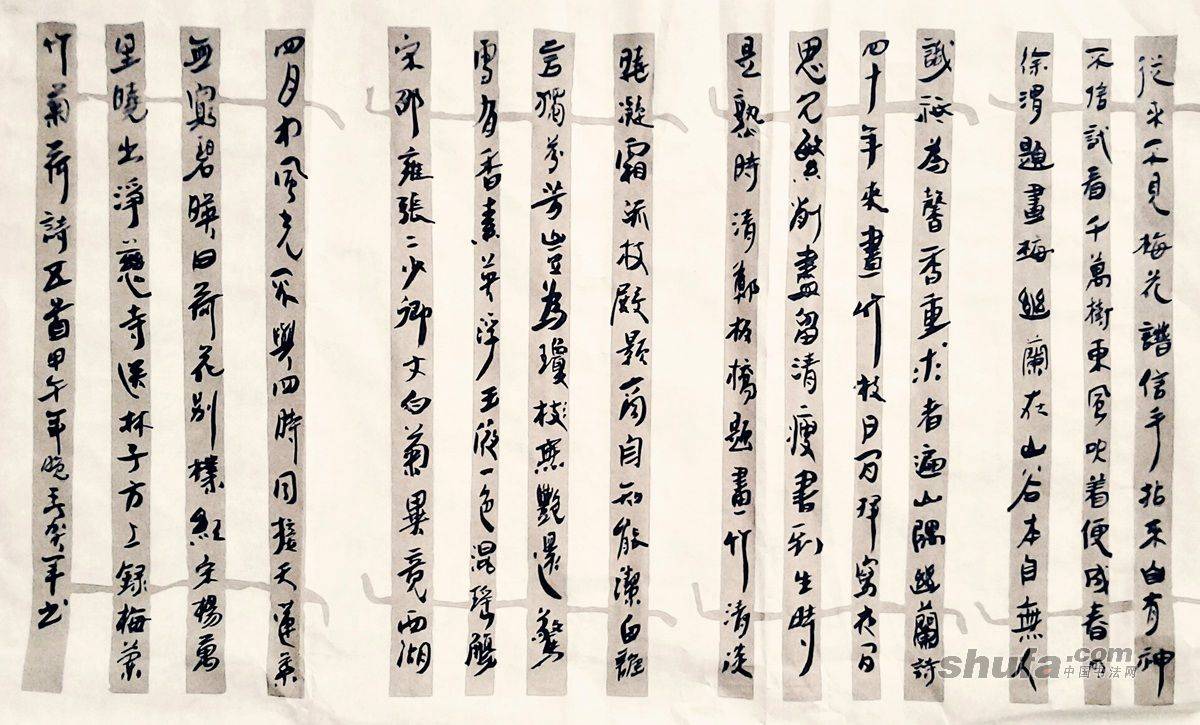 從来不見梅花譜信手拈来自有神
不信試看千萬樹東風吹着便成春明
徐渭題畫梅幽蘭在山谷本自無人
識祗為馨香重求者遍山隅幽蘭詩
四十年来畫竹枝日間揮寫夜間
思冗繁削盡留清瘦畫到生時
是熟時清鄭板橋題畫竹清淡
曉凝霜枝殿顥商自知能潔白誰
言獨芬芳豈為瓊枝無艷還驚
雪有香素英浮玉液一色混瑶觴
宋邵雍張二少卿丈白菊畢竟西湖
四月中風光不與四時同接天蓮葉
無窮碧映日荷花別樣紅宋楊萬
里曉出淨慈寺送林子方上錄梅蘭
竹菊荷詩五首甲午年晚年书
shufa.com
中国书法网